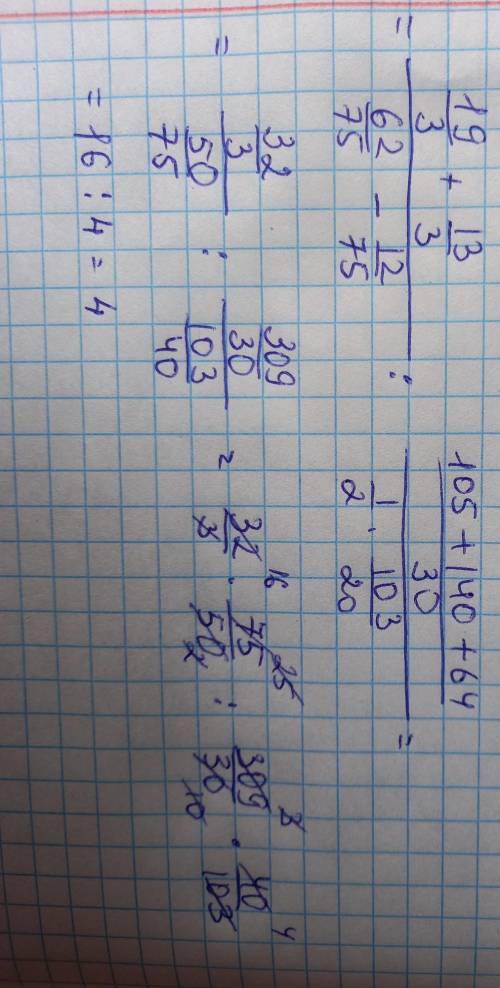 = (19/3 + 13/3)/(62/75 - 12/75) : ((105 + 140 + 64)/30)/(1/2 · 103/20) =
= (32/3)/(50/75) : (309/30)/(103/40) = 32/3 · 75/50 : 309/30 · 40/103
16 25 3 4
2 10
= 16 : 4 = 4